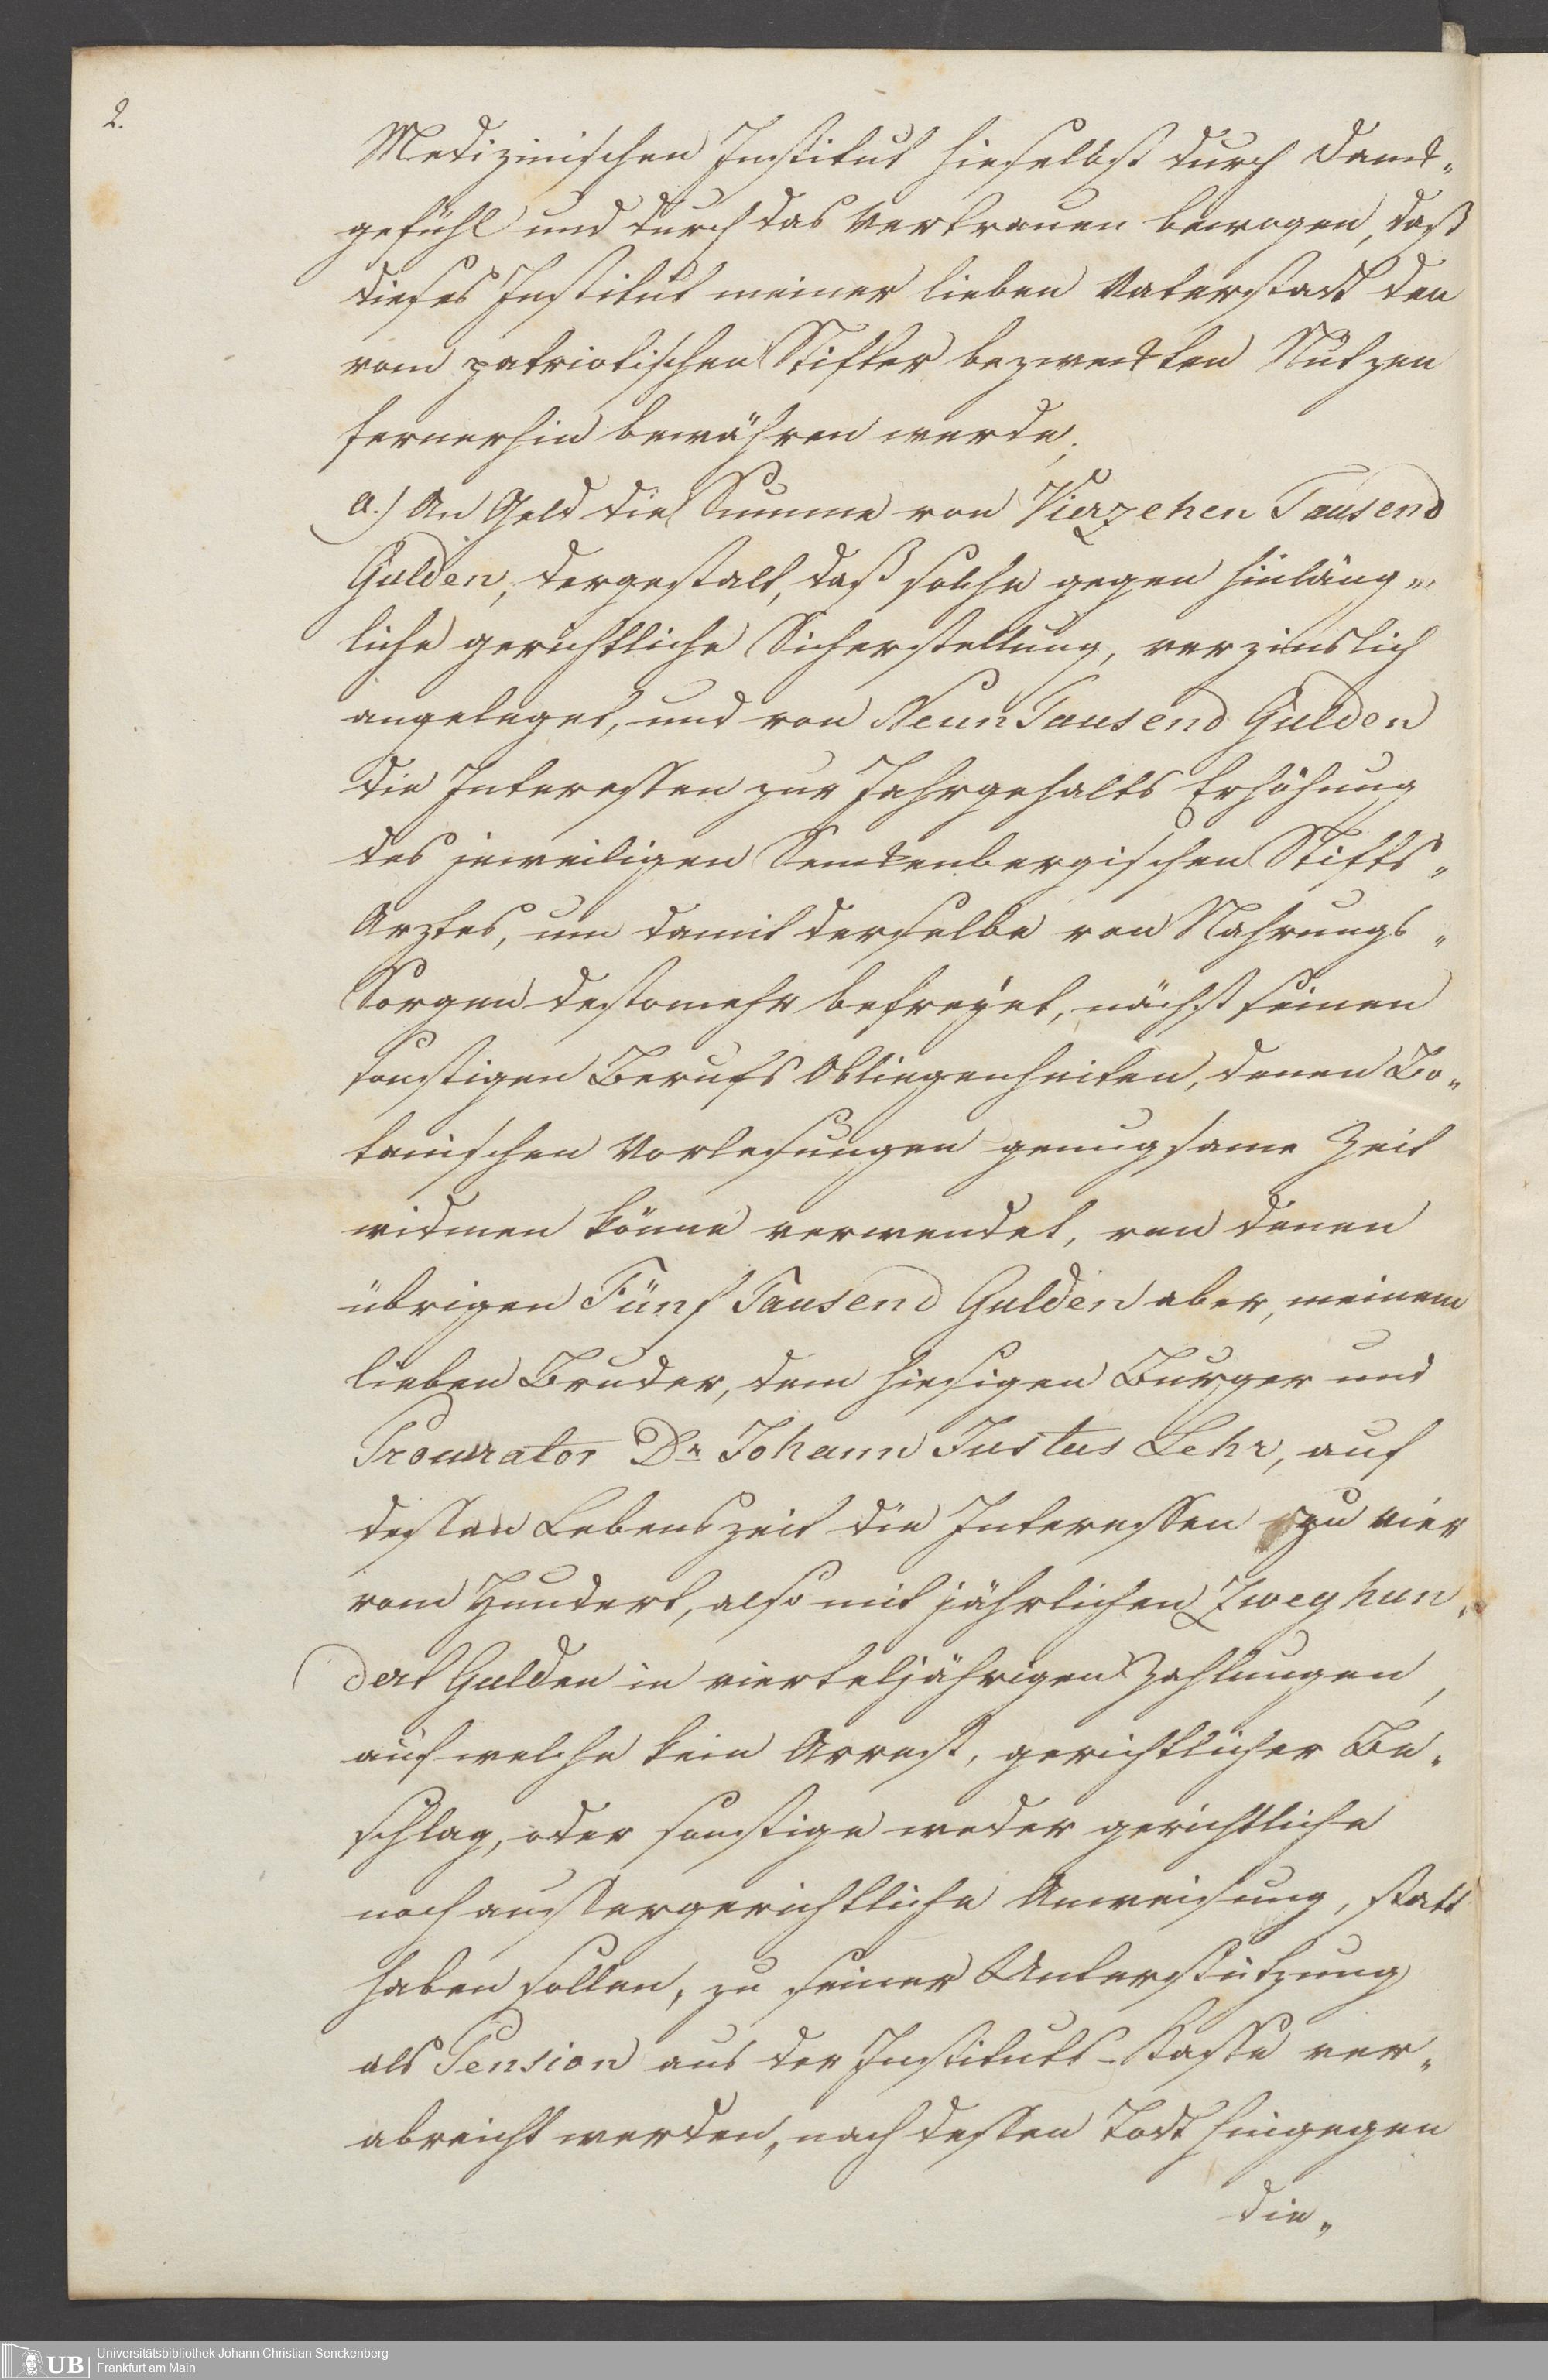 2.
Medizinischen Institut hieselbst durch Dank„
gefühl und durch das Vertrauen bewogen, daß
dieses Institut meiner lieben Vaterstadt den
vom patriotischen Stifter bezweckten Nutzen
fernerhin bewähren werde,
a.) An Geld die Summe von Vierzehen Tausend
Gulden, dergestalt, daß solche gegen hinläng„
liche gerichtliche Sicherstellung, verzinslich
angeleget, und von Neun Tausend Gulden
die Interessen zur Jahrgehalts Erhöhung
des jeweiligen Senckenbergischen Stifts„
Arztes, um damit derselbe von Nahrungs„
Sorgen destomehr befreyet, nächst seinen
sonstigen Berufs Obliegenheiten, denen Bo„
tanischen Vorlesungen genugsame Zeit
widmen könne verwendet, von denen
übrigen Fünf Tausend Gulden aber, meinem
lieben Bruder, dem hiesigen Burger und
Procurator Dr. Johann Justus Lehr, auf
dessen Lebenszeit die Interessen zu vier
vom Hundert, also mit jährlichen Zweyhun„
dert Gulden in vierteljährigen Zahlungen,
auf welche kein Arrest, gerichtlicher Be„
schlag, oder sonstige weder gerichtliche
noch aussergerichtliche Anweisung, statt
haben sollen, zu seiner Unterstützung
als Pension aus der Instituts-Kasse ver„
abreicht werden, nach dessen Todt hingegen
die„
UB
Universitätsbibliothek Johann Christian Senckenberg
Frankfurt am Main